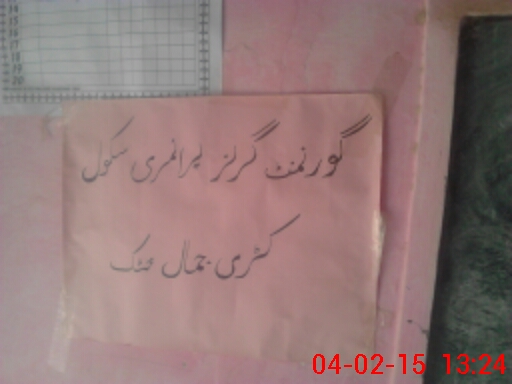 15
16
17
18
19
20
گورنمنٹ گرلز پرائمری سکول
کٹری جمال خٹک
04-02-15 13:24